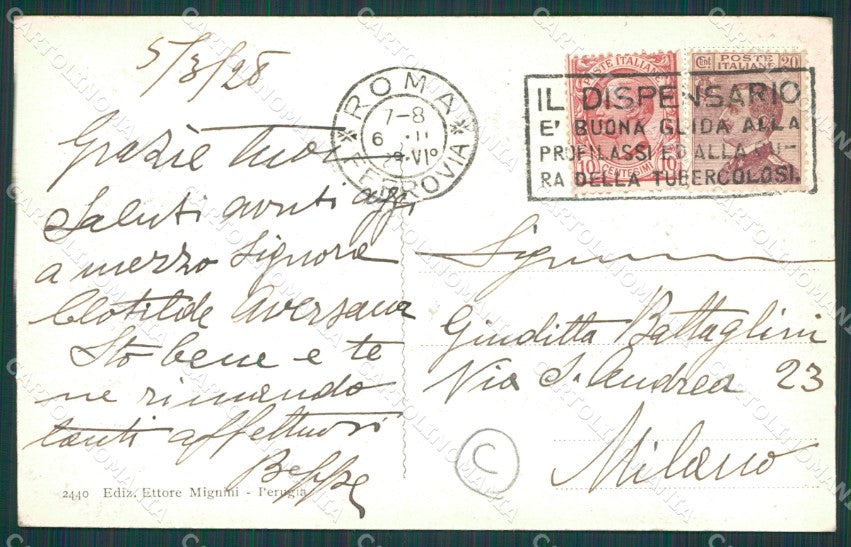 5/3/28
Grazie tuoi
saluti avuti oggi
a mezzo Signora
Clotilde Aversana
Sto bene e te
ne rimando
tanti affettuosi
Beppe
2440 Ediz. Ettore Mignini - Perugia
ROMA
7-8
6 II
28 VIº
FERROVIA
IL DISPENSARIO
E' BUONA GUIDA ALLA
PROFILASSI ED ALLA CU-
RA DELLA TUBERCOLOSI.
POSTE ITALIANE
10 CENTESIMI 10
Cent POSTE ITALIANE 20
Giuditta Battaglini
Via S. Andrea 23
Milano
C
CARTOLINOMANIA